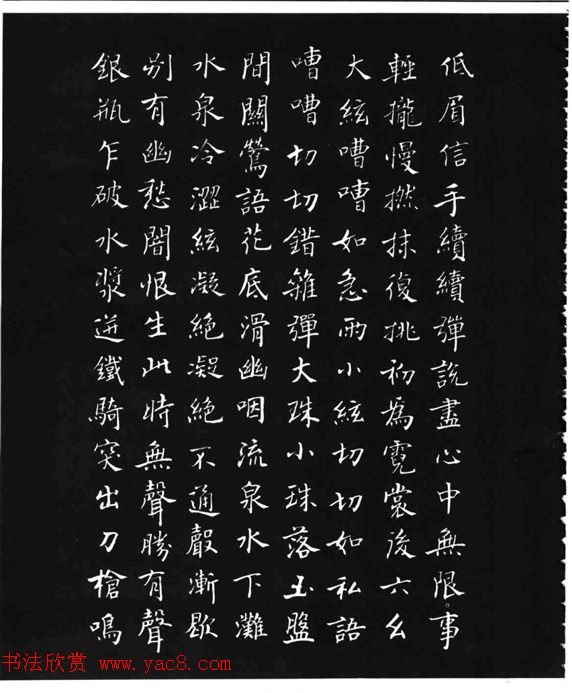 低眉信手續續彈說盡心中無限事
輕攏慢撚抹復挑初爲霓裳後六幺
大絃嘈嘈如急雨小絃切切如私語
嘈嘈切切錯雜彈大珠小珠落玉盤
間關鶯語花底滑幽咽流泉水下灘
水泉冷澀絃凝絕凝絕不通聲漸歇
別有幽愁闇恨生此時無聲勝有聲
銀瓶乍破水漿迸鐵騎突出刀槍鳴
书法欣赏 www.yac8.com